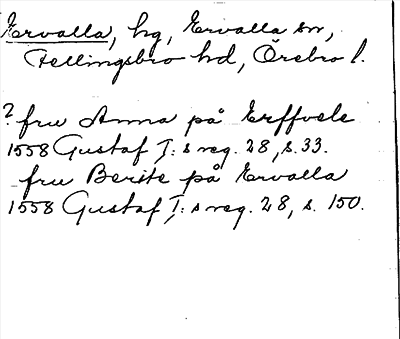 Ervalla, hg, Ervalla sn,
Fellingsbro hd, Örebro l.
? fru Anna på Erffvele
1558 Gustaf I:s reg. 28, s. 33.
fru Berite på Ervalla
1558 Gustaf I:s reg. 28, s. 150.